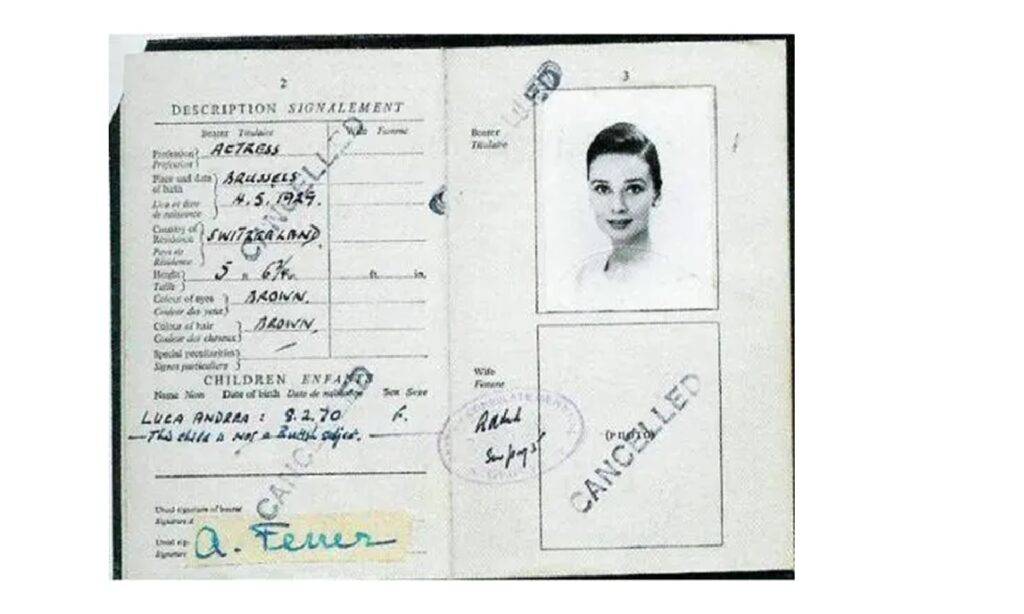 2
DESCRIPTION SIGNALEMENT
Bearer Titulaire Wife Femme
Profession ACTRESS
Profession
Place and date of birth BRUSSELS
Lieu et date de naissance 4.5.1929.
Country of Residence SWITZERLAND
Pays de Résidence
Height 5 ft. 6¾ in. ft. in.
Taille
Colour of eyes BROWN.
Couleur des yeux
Colour of hair BROWN.
Couleur des cheveux
Special peculiarities
Signes particuliers
CHILDREN ENFANTS
Name Nom Date of birth Date de naissance Sex Sexe
LUCA ANDREA: 8.2.70
This child is not a British subject.
Usual signature of bearer
Signature
Usual
Signature
A. Ferrer
CANCELLED
CANCELLED
3
Bearer
Titulaire
Wife
Femme
(PHOTO)
CANCELLED